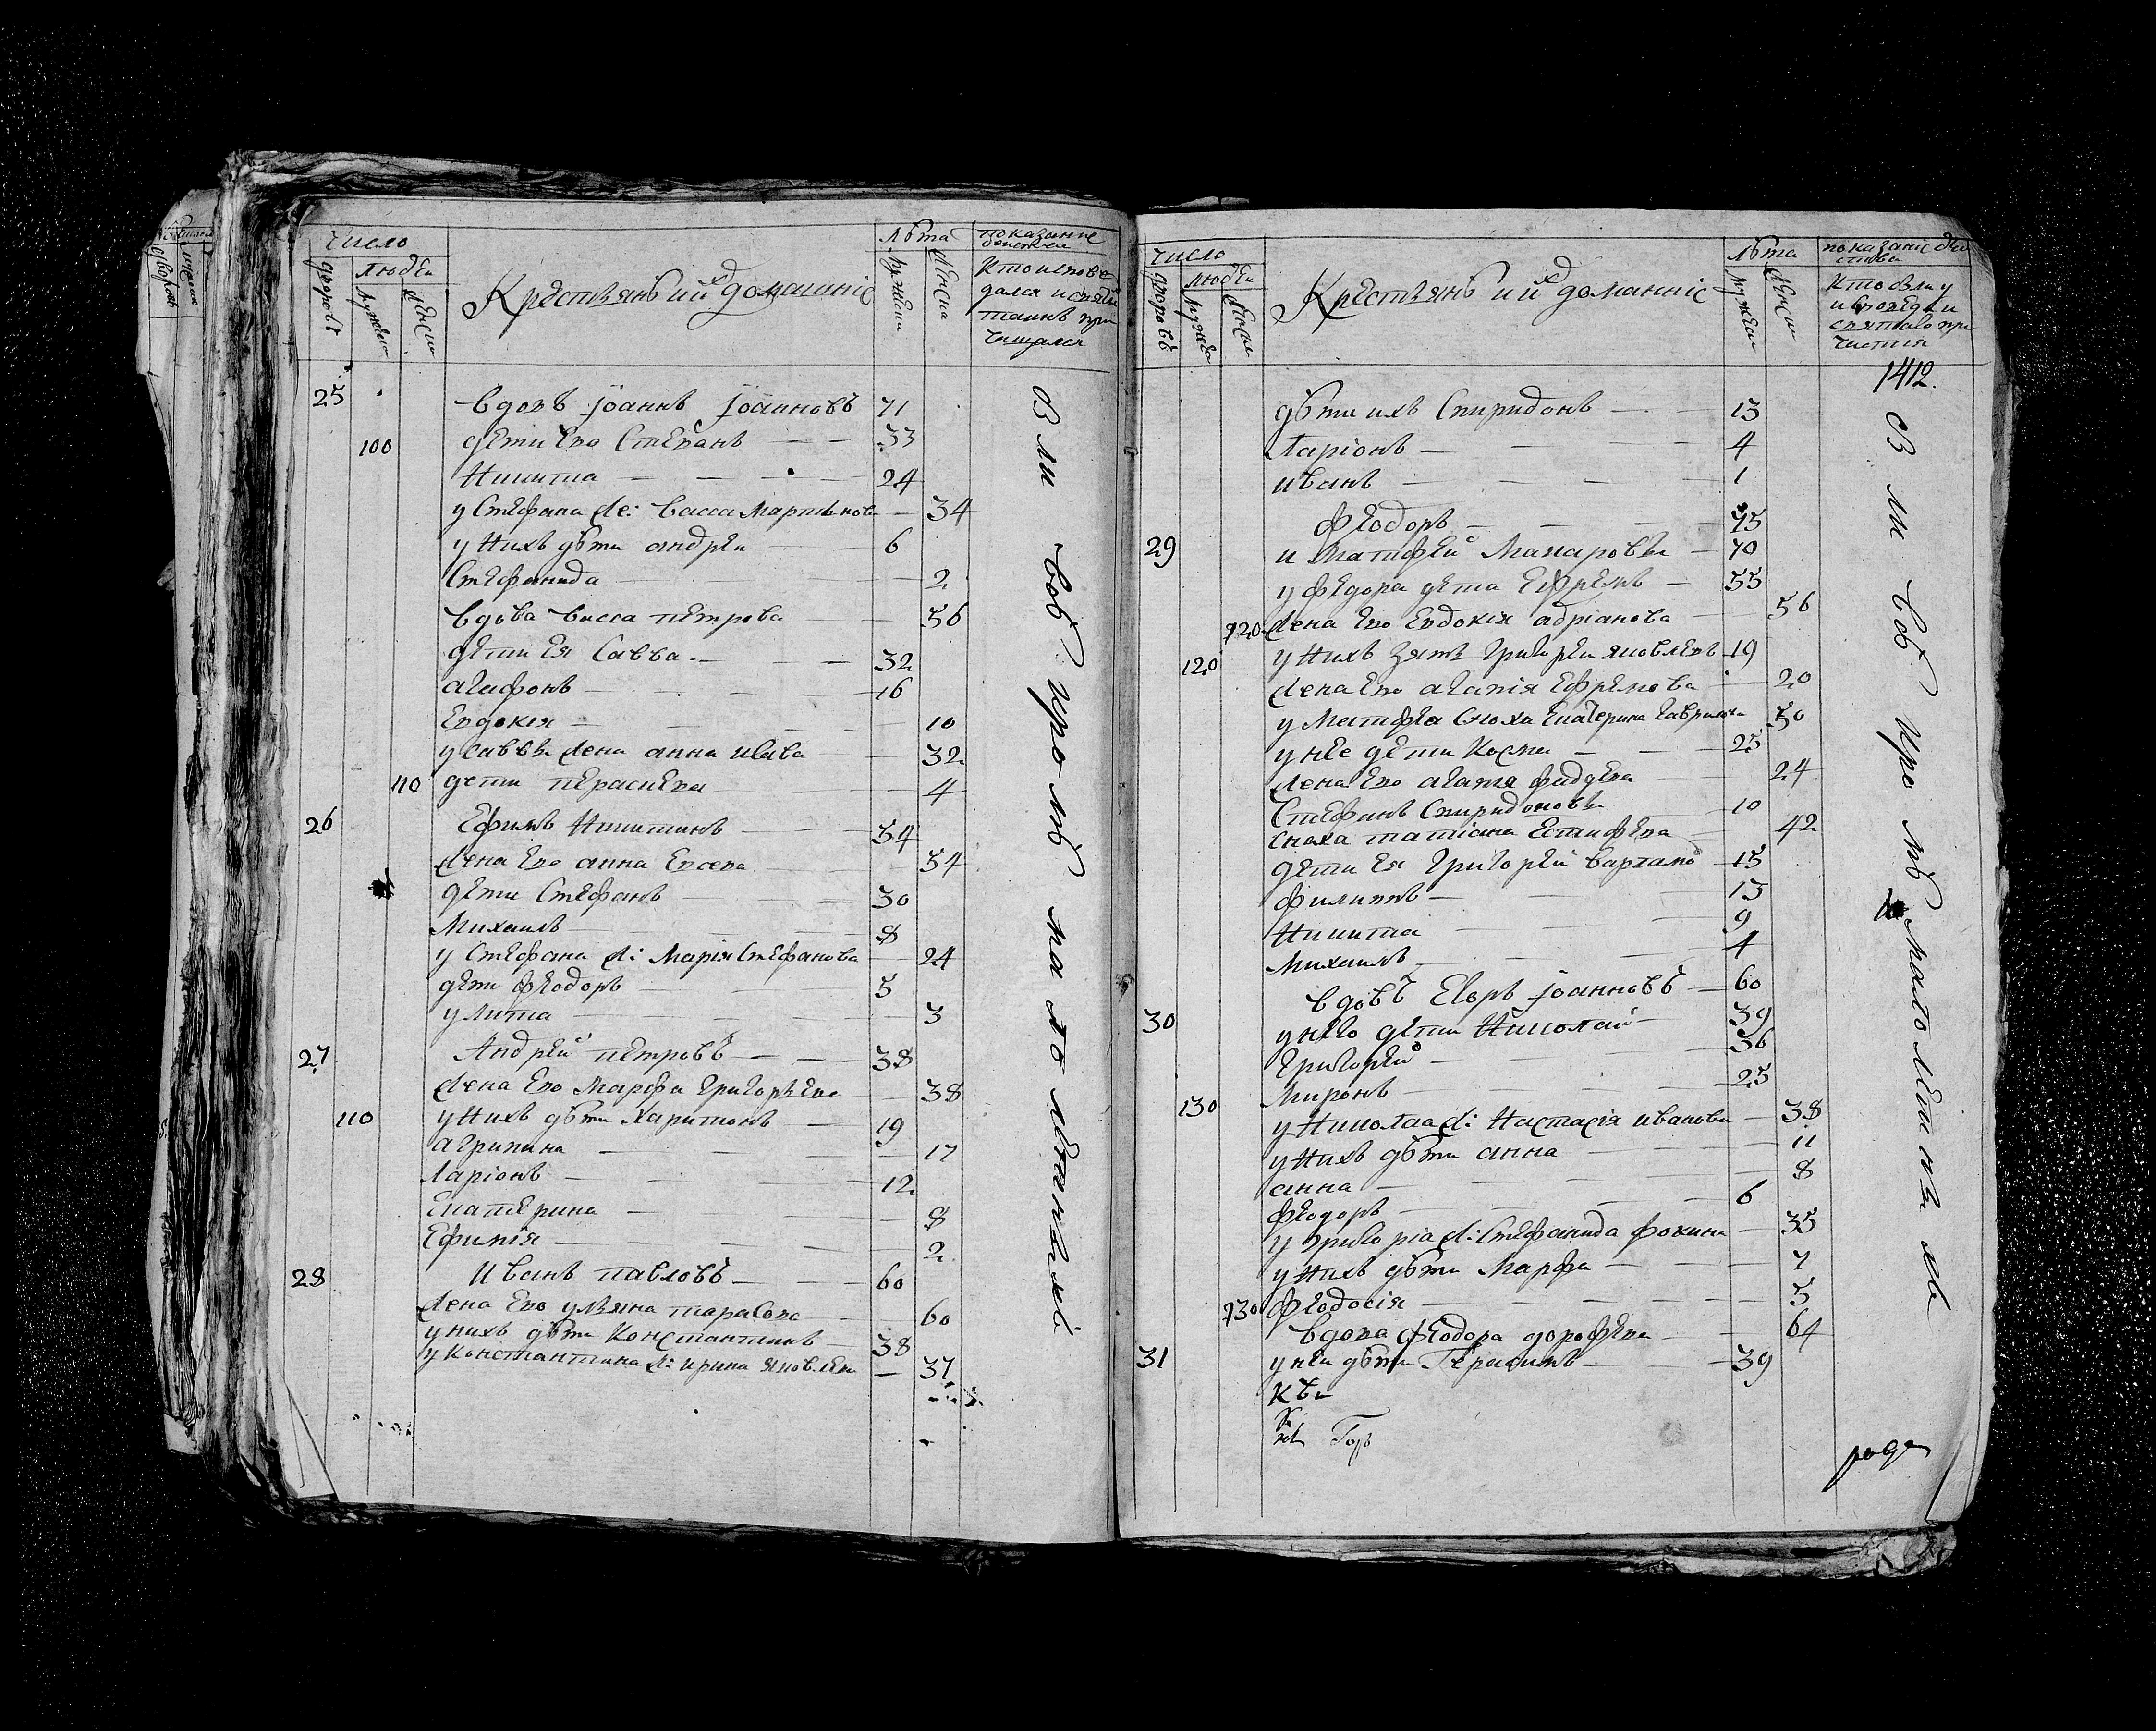 число
людей
дворовъ
мужеска
женска
Крестьянъ и ихъ домашнiе
лѣта
мужеска
женска
показанiе
Кто исповѣ
дался и святы
таинъ при
чащался
25 вдовъ Iоаннъ Iоанновъ 71
100 дети Ево Стефанъ 33
Никита 24
у Стефана же: васса Мартинова 34
у Нихъ дѣти андрей 6
Стефанида 2
вдова васса петрова 56
дети Ея Савва 32
агафонъ 16
Евдокiя 10
у саввы жена анна 32
110 дети параскева 4
26 Ефимъ Никитинъ 54
жена Ево анна 54
дети Стефанъ 30
Михаилъ 8
у Стефана ж: Марiя Стефанова 24
дети Феодоръ 5
улита 3
27 Андрей петровъ 38
жена Ево Марфа григорьева 38
110 у Нихъ дѣти Харитонъ 19
агрипина 17
ларiонъ 12
Екатерина 8
Ефимiя 2
28 Иванъ павловъ 60
жена Ево ульяна тарасова 60
у нихъ дѣти Константинъ 38
у Константина ж: ирина яковлева 37
Вси вов кромѣ малолѣтныхъ
число
людей
дворовъ
мужеска
женска
Крестьянъ и ихъ домашнiе
лѣта
мужеска
женска
показанiе дѣй
ства
Кто былъ у
исповѣди и
святаго при
частiя
1412.
дѣти ихъ Спиридонъ 13
Ларiонъ 4
иванъ 1
Феодоръ 75
29 и Матфей Макаровы 70
у федора дети Ефремъ 55
120 жена Ево Евдокiя адрiанова 56
120 у Нихъ зять григорей яковлевъ 19
жена Ево агапiя Ефремова 20
у Матфея Сноха Екатерина гаврилова 50
у нее дети Косма 25
жена Ево агапiя 24
Стефанъ Спиридоновъ 10
Сноха татiана Естифева 42
дети Ея григорей 15
филиппъ 15
Никита 9
Михаилъ 4
вдовъ Егоръ Iоанновъ 60
30 у него дети Николай 39
григорей 36
130 Миронъ 25
у Николая ж: Настасiя иванова 38
у Нихъ дѣти анна 11
анна 8
Феодоръ 6
у григорiа ж: Стефанида фокина 35
у Нихъ дѣти Марфа 7
130 Феодосiя 5
вдова Феодора дорофева 64
31 у ней дѣти Герасимъ 39
Вси вов кромѣ малолѣтныхъ
рода